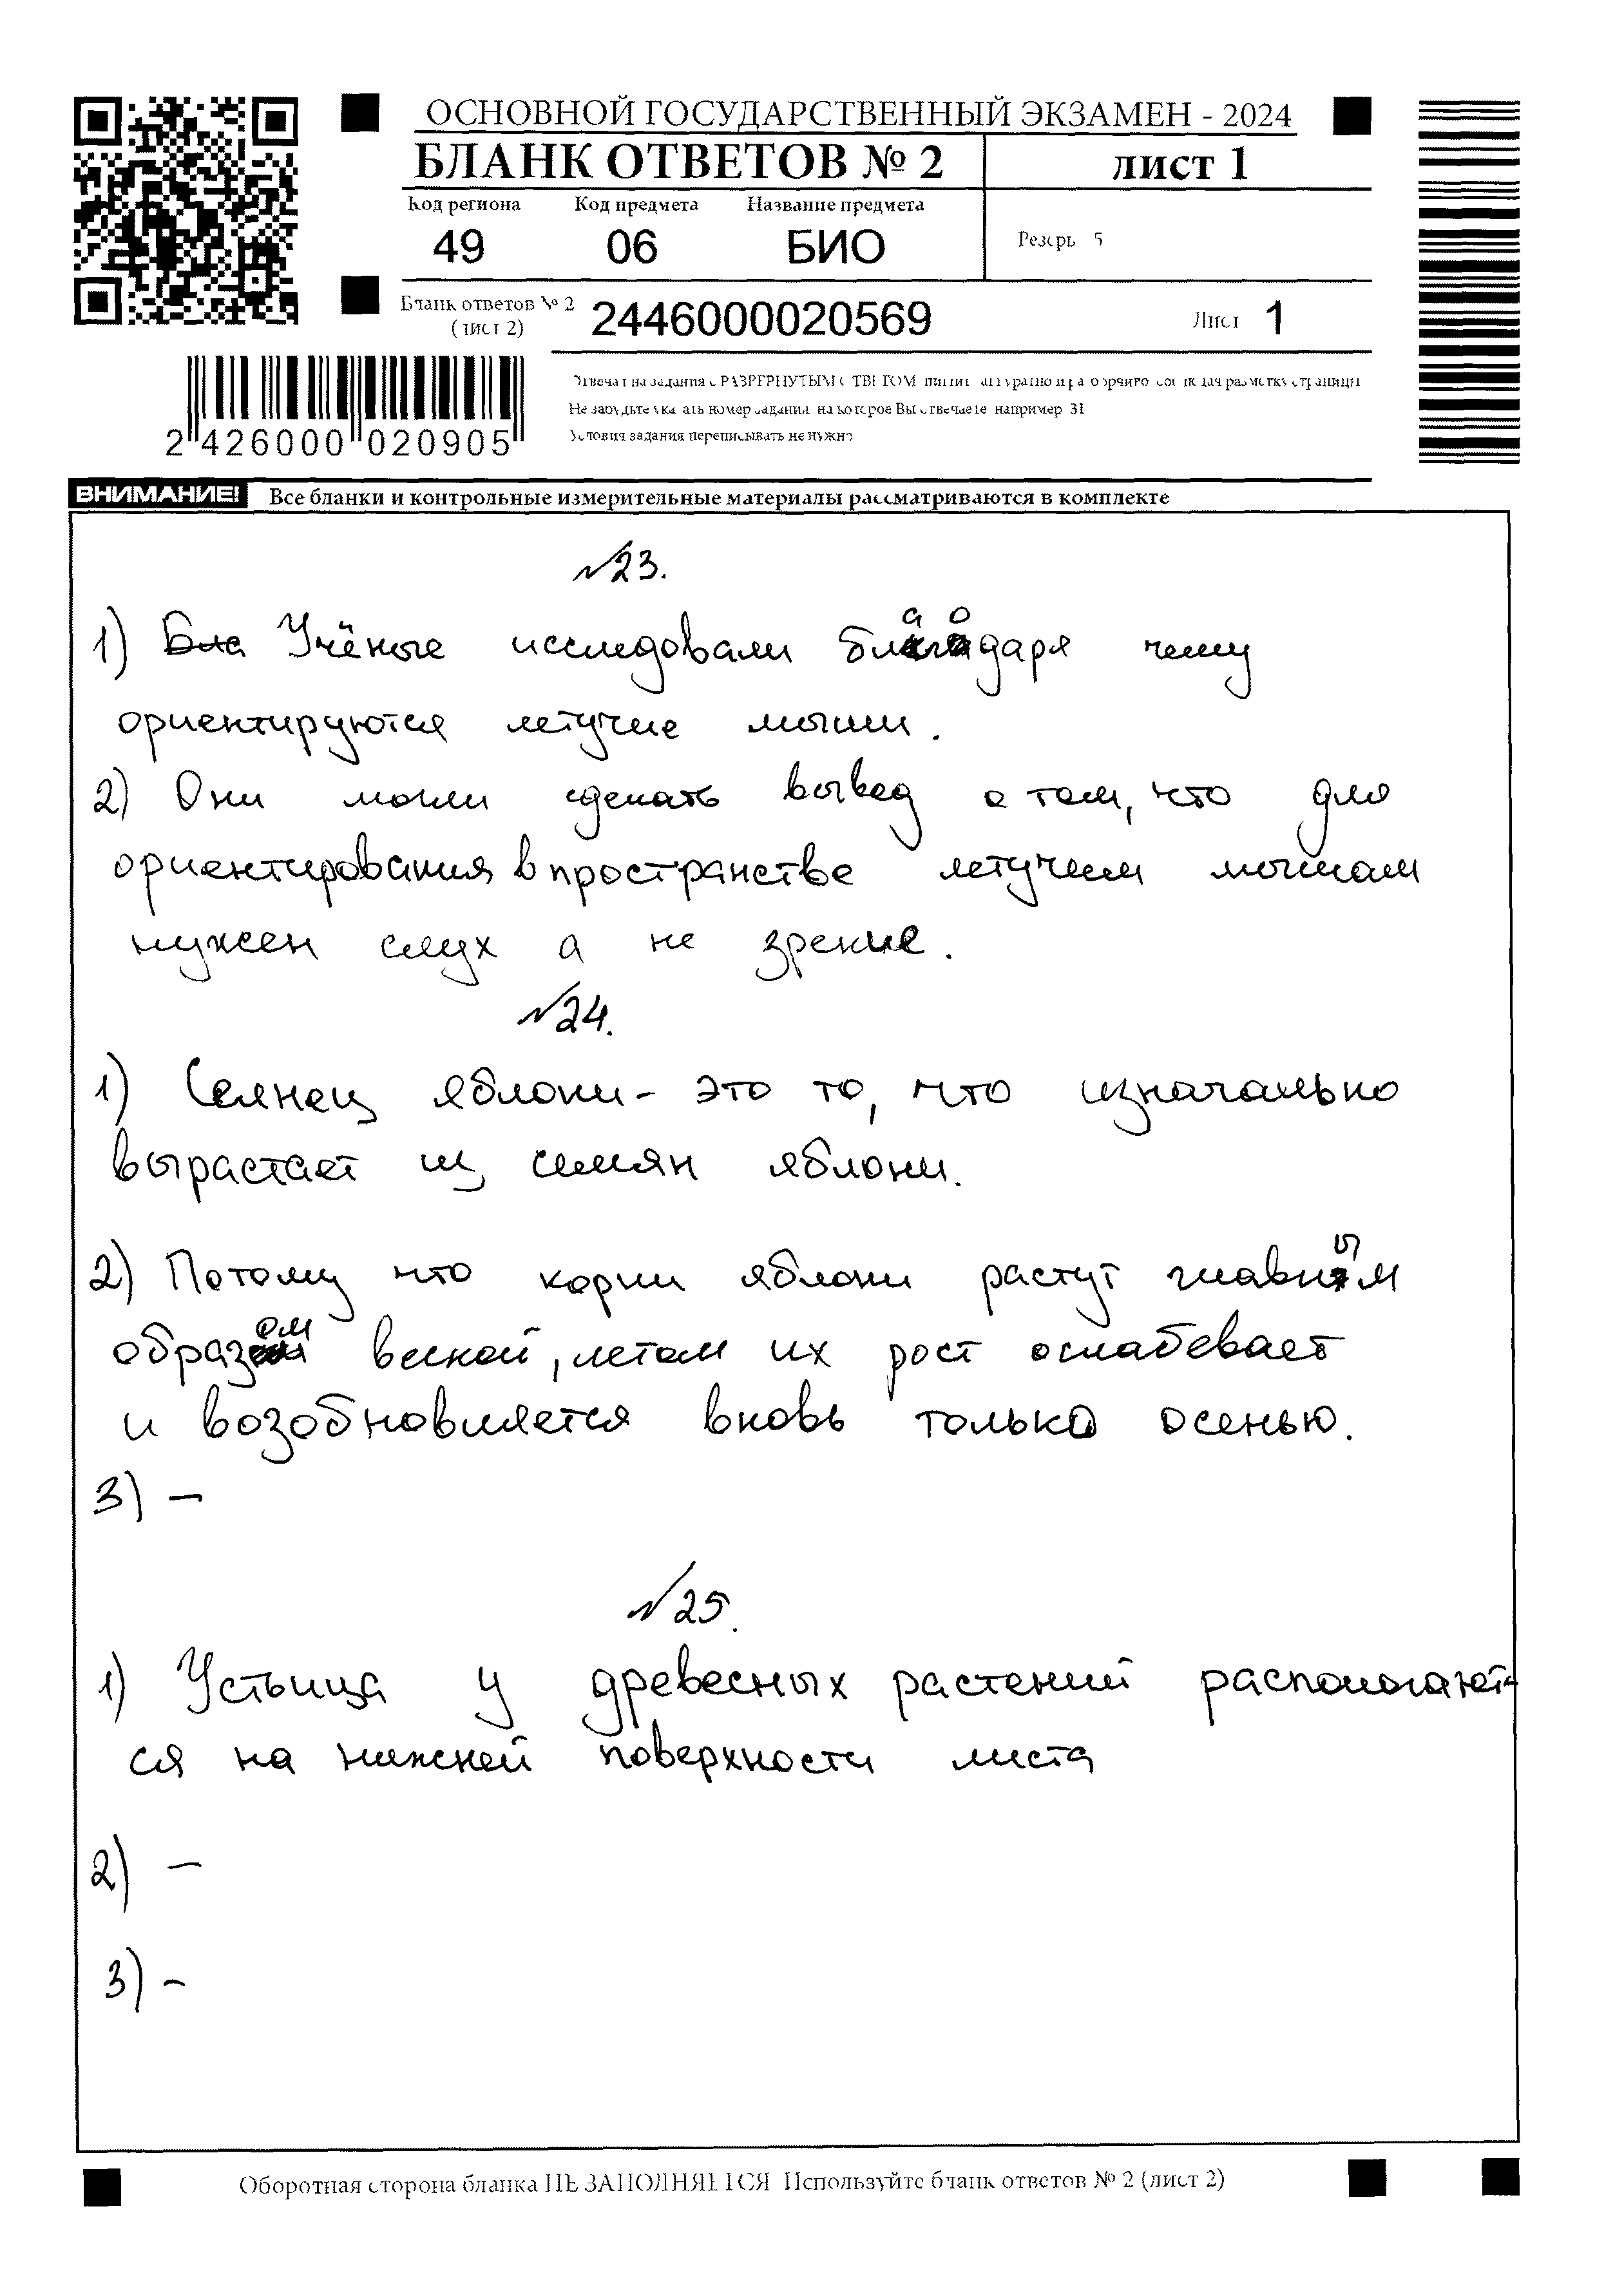 ОСНОВНОЙ ГОСУДАРСТВЕННЫЙ ЭКЗАМЕН - 2024
БЛАНК ОТВЕТОВ № 2 лист 1
Код региона Код предмета Название предмета
49 06 БИО
Резерв 5
Бланк ответов № 2
(лист 2) 2446000020569 Лист 1
2 426000 020905
Не забудьте указать номер задания на которое Вы отвечаете например 31
Условия задания переписывать не нужно
ВНИМАНИЕ! Все бланки и контрольные измерительные материалы рассматриваются в комплекте
№23.
1) Бла Учёные исследовали благодаря чему
ориентируются летучие мыши.
2) Они могли сделать вывод о том, что для
ориентирования в пространстве летучем мышам
нужен слух а не зрение.
№24.
1) Сеянец яблони - это то, что изначально
вырастает из семян яблони.
2) Потому что корни яблони растут главным
образом весной, летом их рост ослабевает
и возобновляется вновь только осенью.
3) –
№25.
1) Устьица у древесных растений распологают-
ся на нижней поверхности листа
2) –
3) –
Оборотная сторона бланка НЕ ЗАПОЛНЯЕТСЯ Используйте бланк ответов № 2 (лист 2)